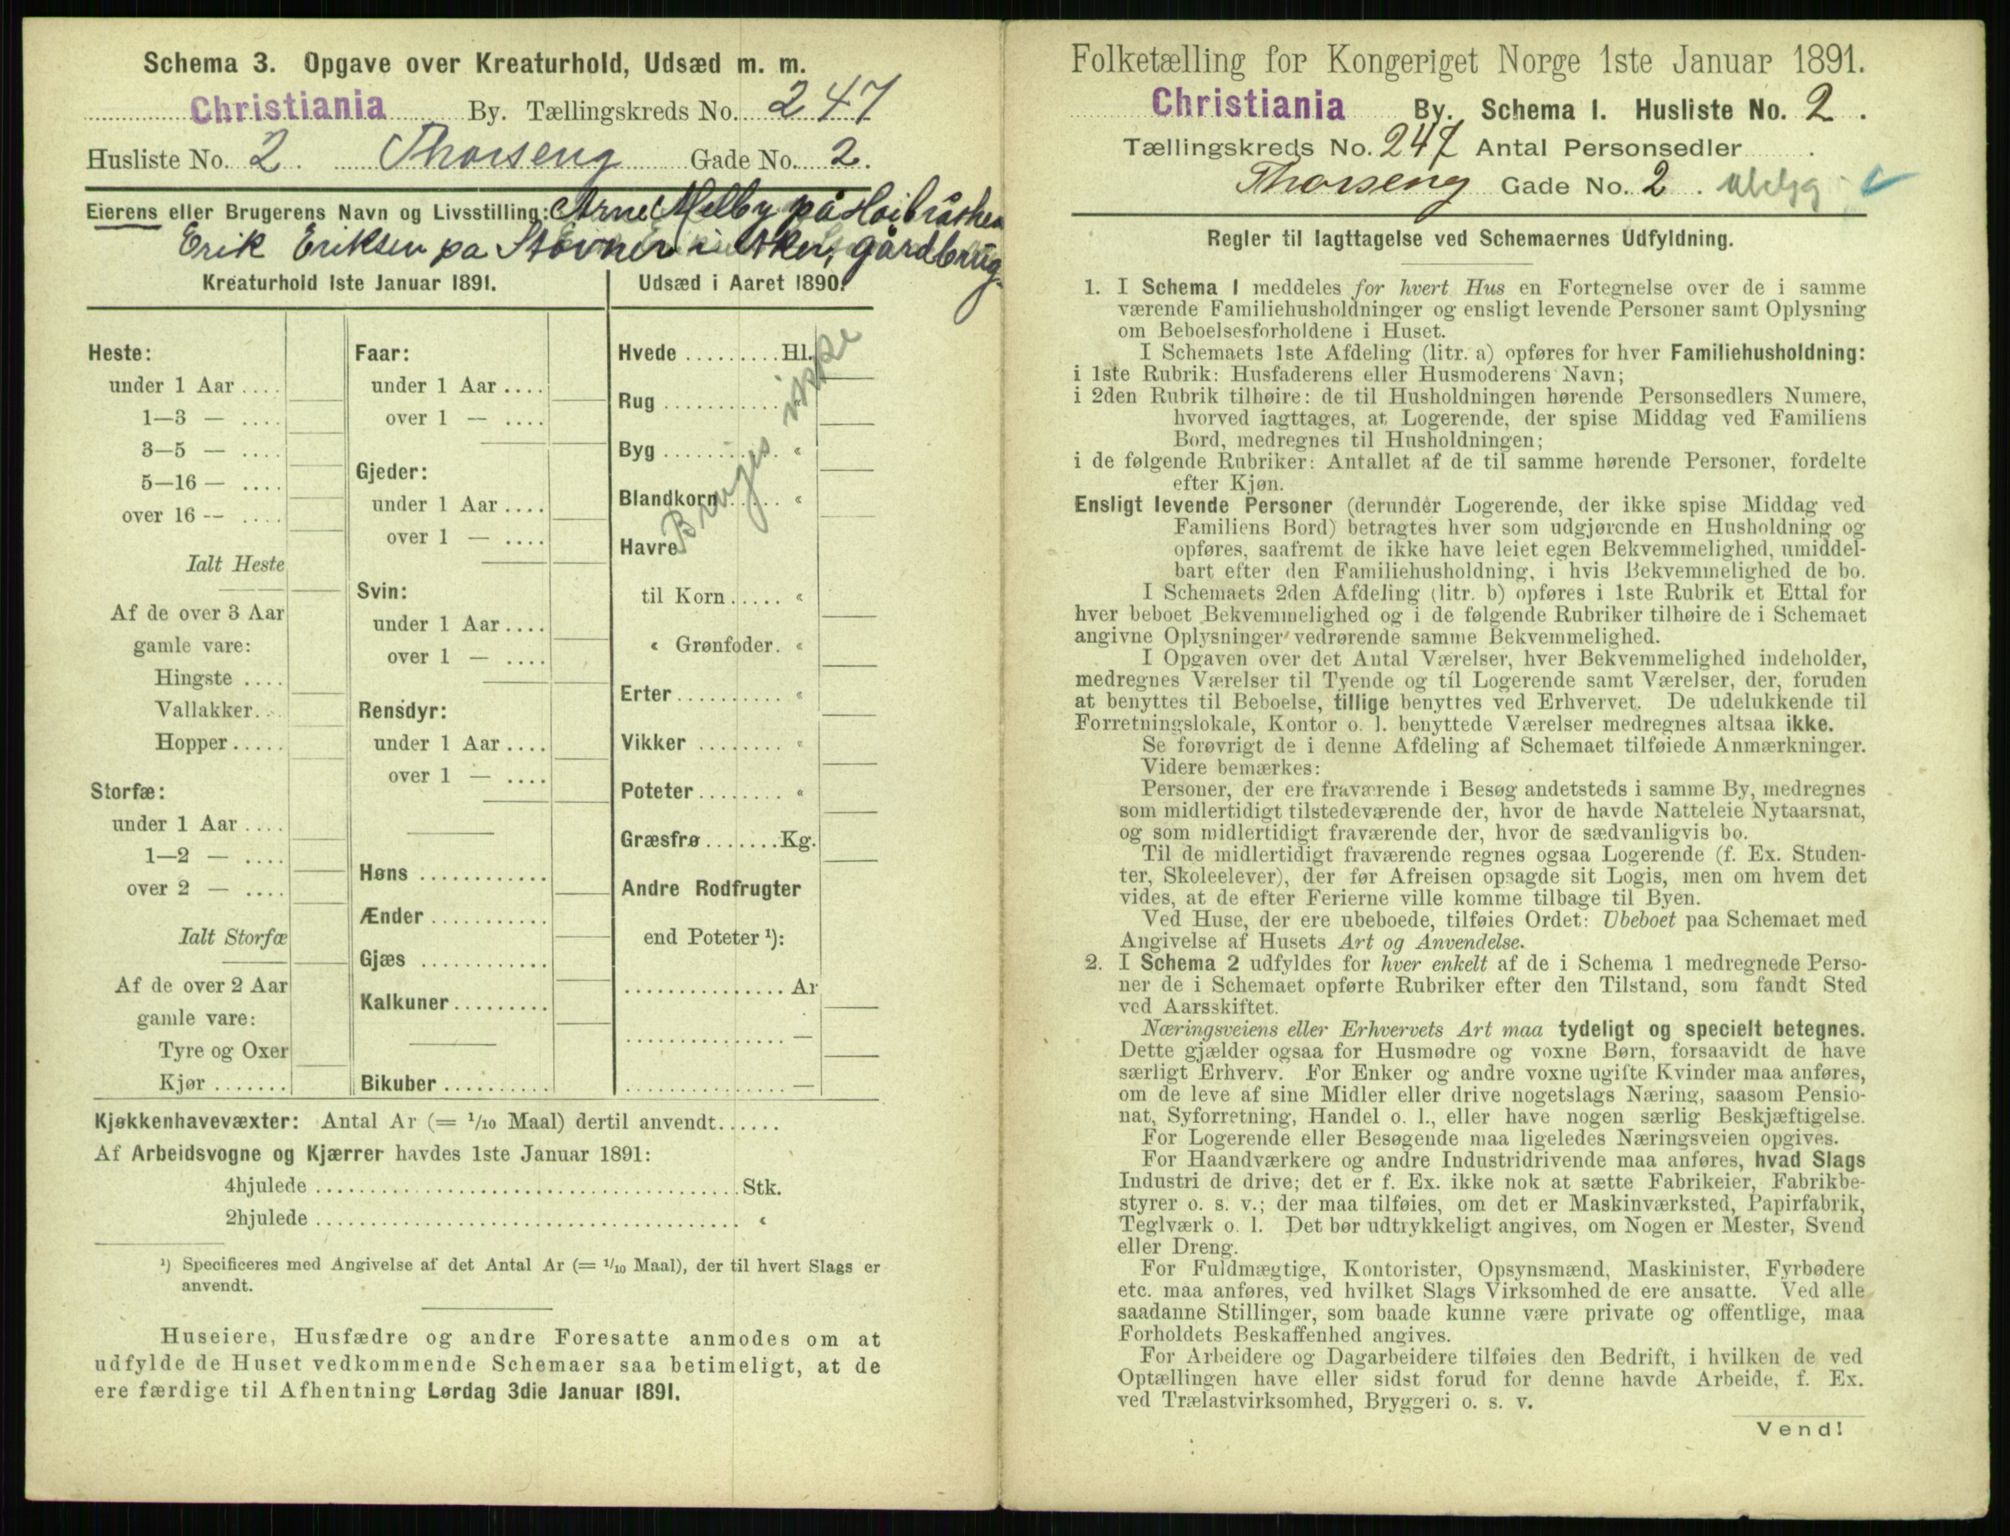 Schema 3. Opgave over Kreaturhold, Udsæd m. m.
Christiania By. Tællingskreds No. 247
Husliste No. 2. Thorseng Gade No. 2.
Eierens eller Brugerens Navn og Livsstilling: Arne Melby på
Erik Eriksen på Stovner i Asker, gårdbrug.
Kreaturhold 1ste Januar 1891.
Heste:
under 1 Aar ....
1—3 — ....
3—5 — ....
5—16 — ....
over 16 -- ....
Ialt Heste
Af de over 3 Aar
gamle vare:
Hingste ....
Vallakker...
Hopper.....
Storfæ:
under 1 Aar ....
1—2 — ....
over 2 — ....
Ialt Storfæ
Af de over 2 Aar
gamle vare:
Tyre og Oxer
Kjør.......
Faar:
under 1 Aar....
over 1 — ....
Gjeder:
under 1 Aar....
over 1 — ....
Svin:
under 1 Aar....
over 1 — ....
Rensdyr:
under 1 Aar....
over 1 — ....
Høns ............
Ænder...........
Gjæs ............
Kalkuner.........
Bikuber..........
Udsæd i Aaret 1890.
Hvede .........Hl.
Rug ........... «
Byg ........... «
Blandkorn...... «
Havre
til Korn..... «
« Grønfoder. «
Erter.......... «
Vikker ........ «
Poteter........ «
Græsfrø .......Kg.
Andre Rodfrugter
end Poteter ¹):
...............Ar
...............—
...............—
Bruges ikke
Kjøkkenhavevæxter: Antal Ar (= 1/10 Maal) dertil anvendt......
Af Arbeidsvogne og Kjærrer havdes 1ste Januar 1891:
4hjulede .......................................Stk.
2hjulede ....................................... «
¹) Specificeres med Angivelse af det Antal Ar (= 1/10 Maal), der til hvert Slags er
anvendt.
Huseiere, Husfædre og andre Foresatte anmodes om at
udfylde de Huset vedkommende Schemaer saa betimeligt, at de
ere færdige til Afhentning Lørdag 3die Januar 1891.
Folketælling for Kongeriget Norge 1ste Januar 1891.
Christiania By. Schema I. Husliste No. 2.
Tællingskreds No. 247 Antal Personsedler .
Thorseng Gade No. 2.
Regler til Iagttagelse ved Schemaernes Udfyldning.
1. I Schema 1 meddeles for hvert Hus en Fortegnelse over de i samme
værende Familiehusholdninger og ensligt levende Personer samt Oplysning
om Beboelsesforholdene i Huset.
I Schemaets 1ste Afdeling (litr. a) opføres for hver Familiehusholdning:
i 1ste Rubrik: Husfaderens eller Husmoderens Navn;
i 2den Rubrik tilhøire: de til Husholdningen hørende Personsedlers Numere,
hvorved iagttages, at Logerende, der spise Middag ved Familiens
Bord, medregnes til Husholdningen;
i de følgende Rubriker: Antallet af de til samme hørende Personer, fordelte
efter Kjøn.
Ensligt levende Personer (derunder Logerende, der ikke spise Middag ved
Familiens Bord) betragtes hver som udgjørende en Husholdning og
opføres, saafremt de ikke have leiet egen Bekvemmelighed, umiddel-
bart efter den Familiehusholdning, i hvis Bekvemmelighed de bo.
I Schemaets 2den Afdeling (litr. b) opføres i 1ste Rubrik et Ettal for
hver beboet Bekvemmelighed og i de følgende Rubriker tilhøire de i Schemaet
angivne Oplysninger vedrørende samme Bekvemmelighed.
I Opgaven over det Antal Værelser, hver Bekvemmelighed indeholder,
medregnes Værelser til Tyende og til Logerende samt Værelser, der, foruden
at benyttes til Beboelse, tillige benyttes ved Erhvervet. De udelukkende til
Forretningslokale, Kontor o. l. benyttede Værelser medregnes altsaa ikke.
Se forøvrigt de i denne Afdeling af Schemaet tilføiede Anmærkninger.
Videre bemærkes:
Personer, der ere fraværende i Besøg andetsteds i samme By, medregnes
som midlertidigt tilstedeværende der, hvor de havde Natteleie Nytaarsnat,
og som midlertidigt fraværende der, hvor de sædvanligvis bo.
Til de midlertidigt fraværende regnes ogsaa Logerende (f. Ex. Studen-
ter, Skoleelever), der før Afreisen opsagde sit Logis, men om hvem det
vides, at de efter Ferierne ville komme tilbage til Byen.
Ved Huse, der ere ubeboede, tilføies Ordet: Ubeboet paa Schemaet med
Angivelse af Husets Art og Anvendelse.
2. I Schema 2 udfyldes for hver enkelt af de i Schema 1 medregnede Perso-
ner de i Schemaet opførte Rubriker efter den Tilstand, som fandt Sted
ved Aarsskiftet.
Næringsveiens eller Erhvervets Art maa tydeligt og specielt betegnes.
Dette gjælder ogsaa for Husmødre og voxne Børn, forsaavidt de have
særligt Erhverv. For Enker og andre voxne ugifte Kvinder maa anføres,
om de leve af sine Midler eller drive nogetslags Næring, saasom Pensio-
nat, Syforretning, Handel o. l., eller have nogen særlig Beskjæftigelse.
For Logerende eller Besøgende maa ligeledes Næringsveien opgives.
For Haandværkere og andre Industridrivende maa anføres, hvad Slags
Industri de drive; det er f. Ex. ikke nok at sætte Fabrikeier, Fabrikbe-
styrer o. s. v.; der maa tilføies, om det er Maskinværksted, Papirfabrik,
Teglværk o. l. Det bør udtrykkeligt angives, om Nogen er Mester, Svend
eller Dreng.
For Fuldmægtige, Kontorister, Opsynsmænd, Maskinister, Fyrbødere
etc. maa anføres, ved hvilket Slags Virksomhed de ere ansatte. Ved alle
saadanne Stillinger, som baade kunne være private og offentlige, maa
Forholdets Beskaffenhed angives.
For Arbeidere og Dagarbeidere tilføies den Bedrift, i hvilken de ved
Optællingen have eller sidst forud for denne havde Arbeide, f. Ex.
ved Trælastvirksomhed, Bryggeri o. s. v.
Vend!